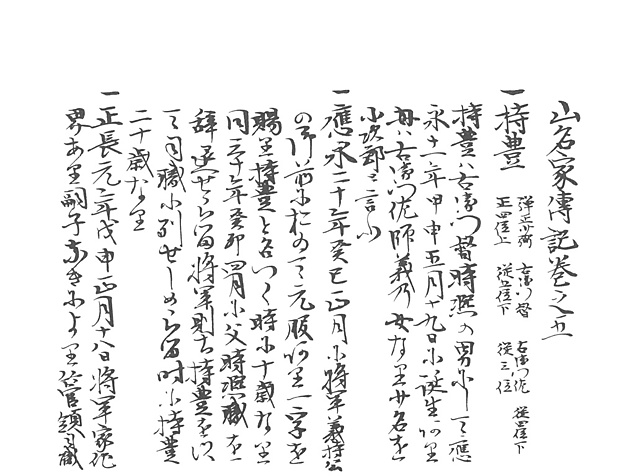 山名家傳記巻之五
一持豊
弾正少弼 右衛門督 右衛門佐 従四位下
正四位上 従五位下 従三位
持豊ハ右衛門督時熈の男にして應
永十一年甲申五月十九日に誕生
母ハ右衛門佐師義乃女なり 名を
小次郎と言ふ
一應永二十年癸巳正月に将軍義持公
の御前に於て元服 一字を
賜里持豊と名つく時に十歳な里
同三十年癸卯四月に父時熈職を
辞退せらる 将軍則ち持豊を以
て 職に列せしめらる 時に持豊
二十歳な里
一正長元年戊申正月十八日将軍家
あ里嗣子なきによ里 管領